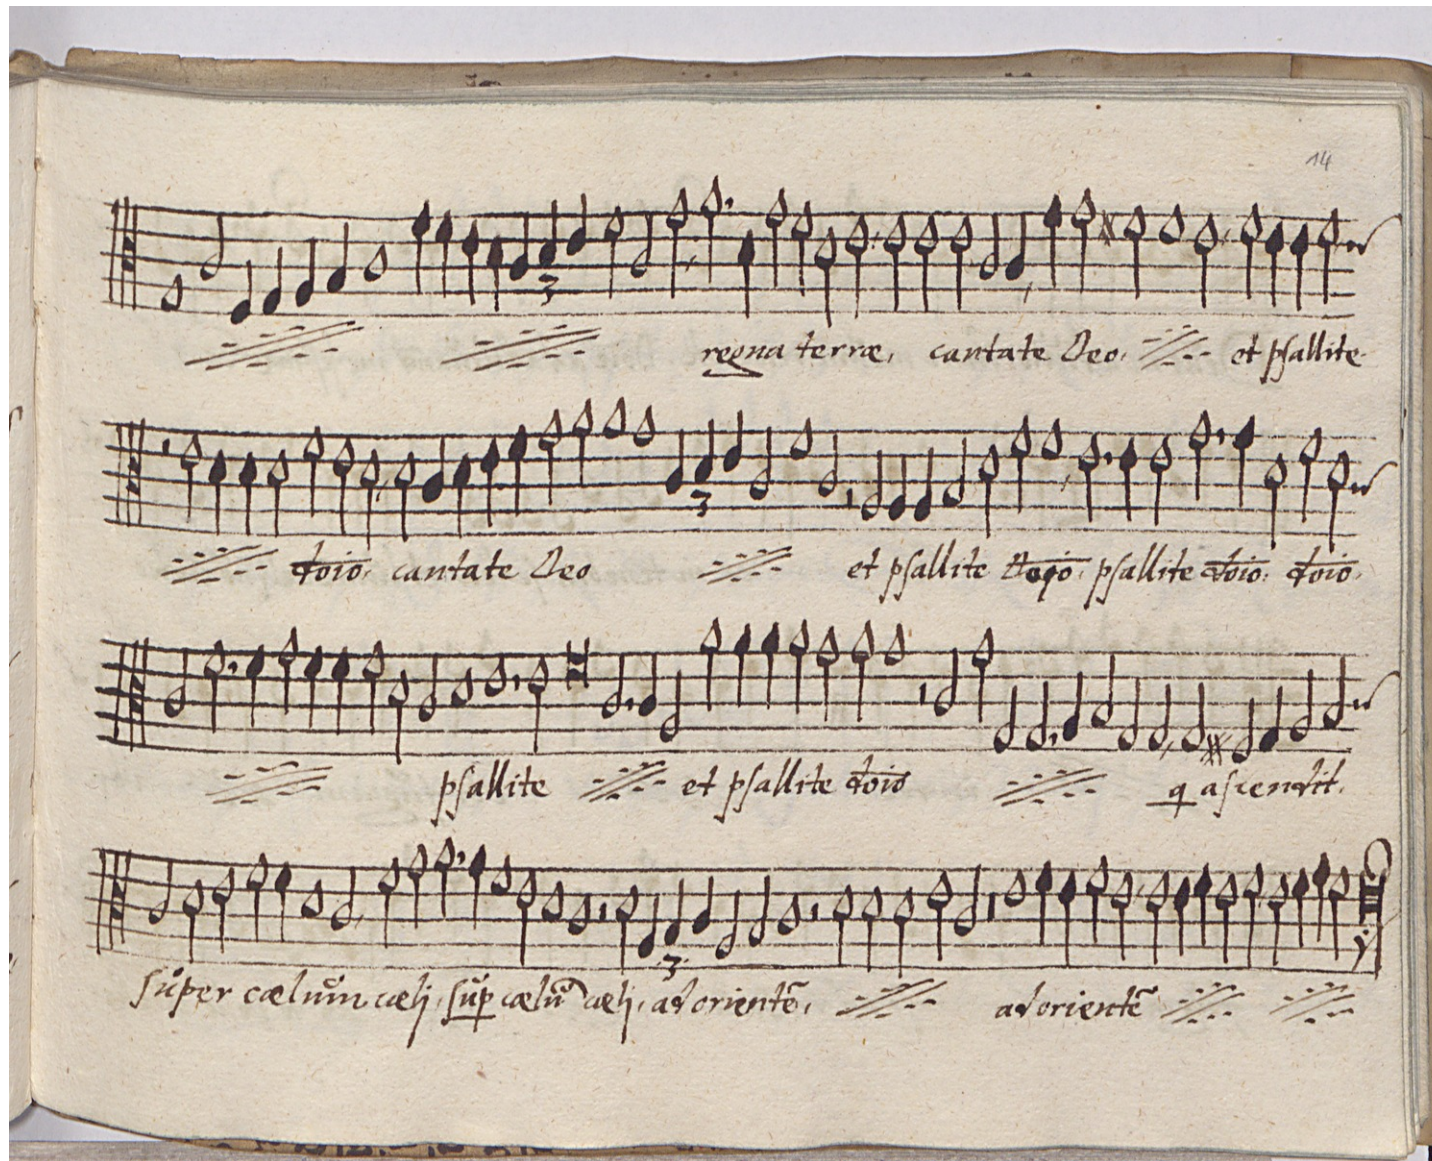 14
3
regna terræ, cantate Deo, et psallite
3
d̄oīo, cantate Deo et psallite psallite d̄oīo, d̄oīo,
psallite et psallite d̄oīo q ascendit.
3
super cælum cæli, sup cælū cæli, ad orientē, ad orientē